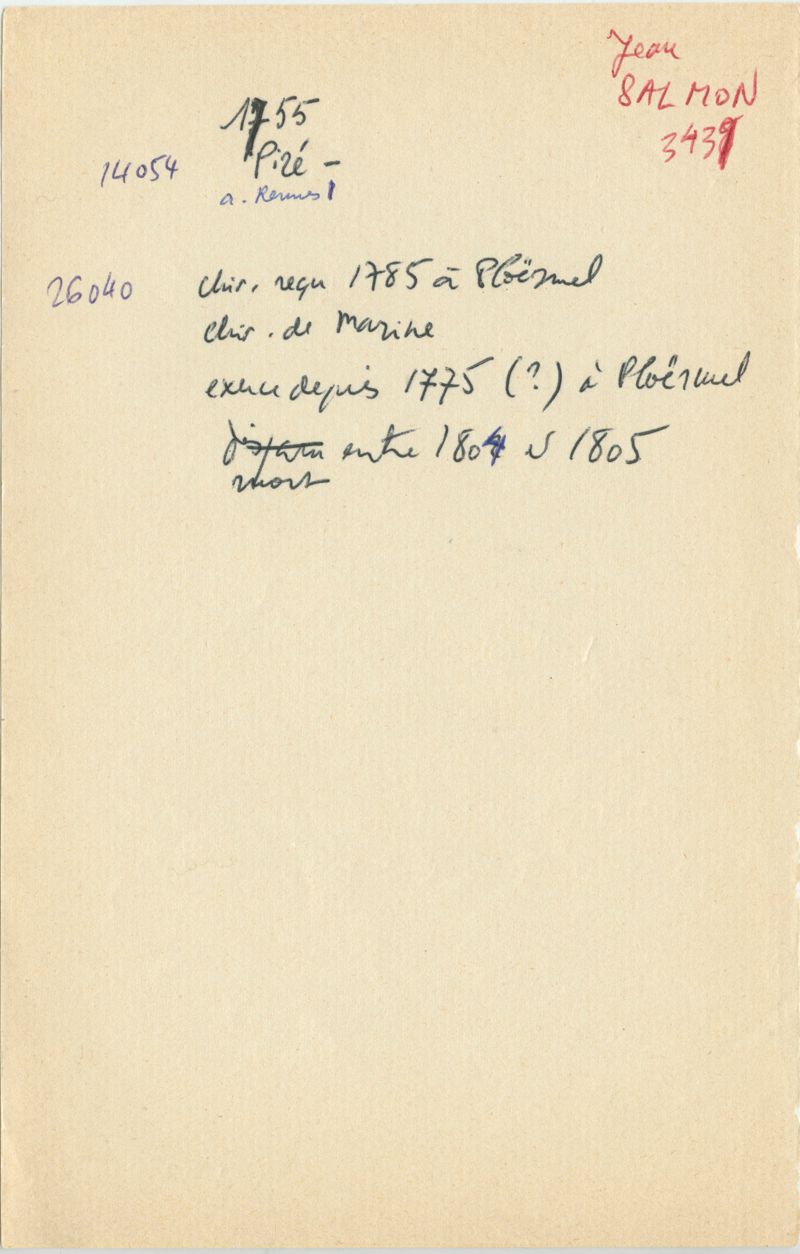 Jean
SALMON
3439
1755
14054 Piré -
a. Rennes
26040 chir. reçu 1785 à Ploërmel
chir. de Marine
exerce depuis 1775 (?) à Ploërmel
disparu entre 1804 et 1805
mort